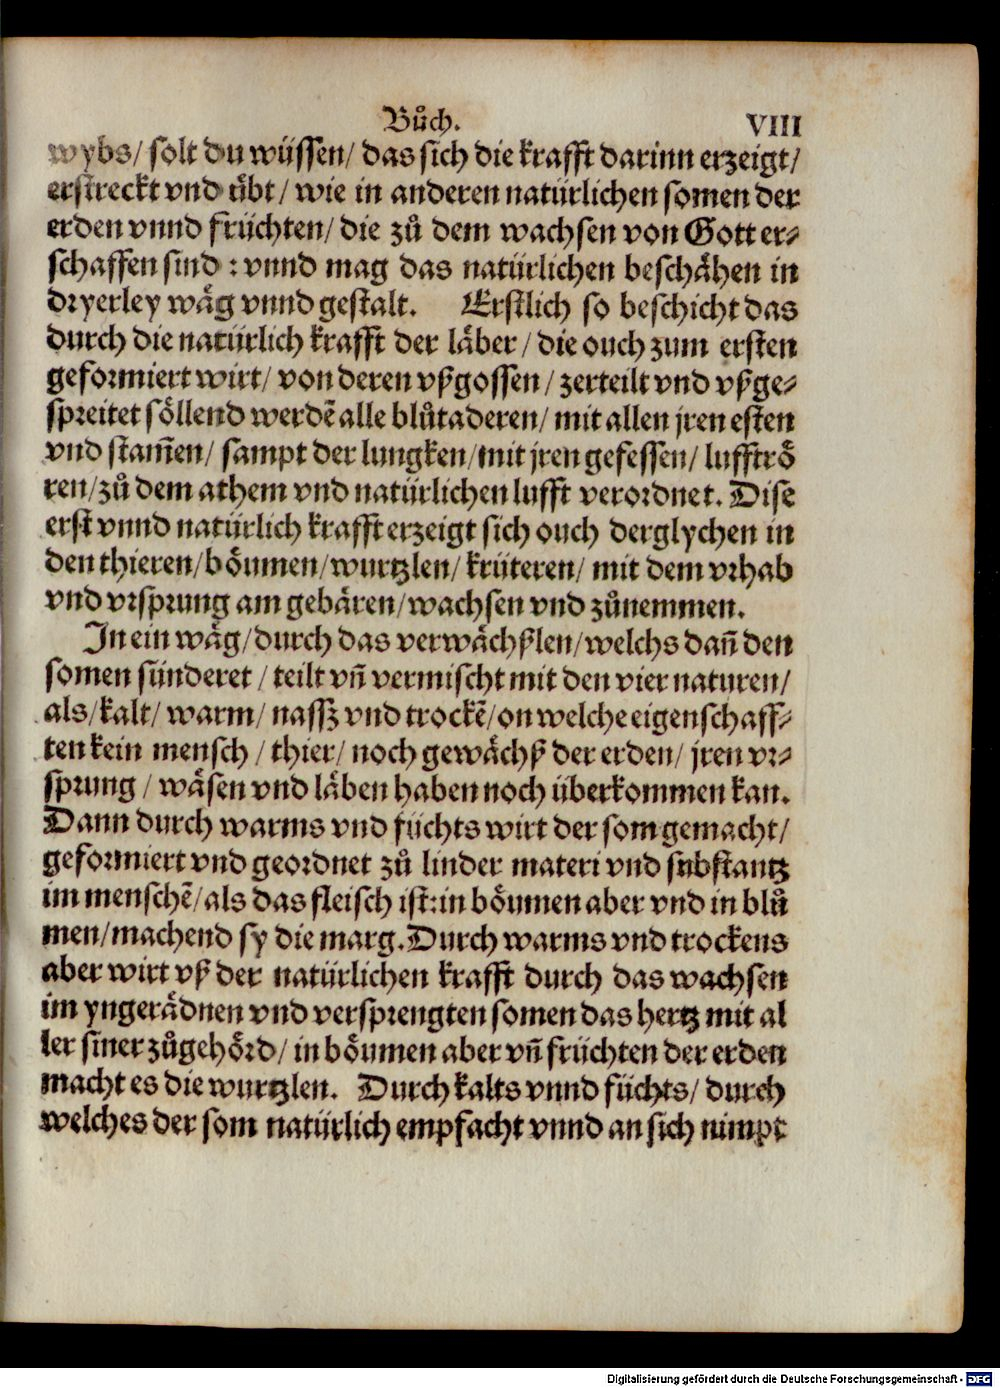 Bůch. VIII
wybs/ solt du wüssen/ das sich die krafft darinn erzeigt/
erstreckt vnd übt/ wie in anderen natürlichen somen der
erden vnnd früchten/ die zů dem wachsen von Gott er⸗
schaffen sind: vnnd mag das natürlichen beschähen in
dryerley wäg vnnd gestalt. Erstlich so beschicht das
durch die natürlich krafft der läber/ die ouch zum ersten
geformiert wirt/ von deren vßgossen/ zerteilt vnd vßge⸗
spreitet söllend werdē alle blůtaderen/ mit allen jren esten
vnd stam̄en/ sampt der lungken/ mit jren gefessen/ lufftrö
ren/ zů dem athem vnd natürlichen lufft verordnet. Dise
erst vnnd natürlich krafft erzeigt sich ouch derglychen in
den thieren/ böumen/ wurtzlen/ krüteren/ mit dem vrhab
vnd vrsprung am gebären/ wachsen vnd zůnemmen.
In ein wäg/ durch das verwächßlen/ welchs dañ den
somen sünderet/ teilt vñ vermischt mit den vier naturen/
als/ kalt/ warm/ nassz vnd trockē/ on welche eigenschaff⸗
ten kein mensch/ thier/ noch gewächß der erden/ jren vr⸗
sprung/ wäsen vnd läben haben noch überkommen kan.
Dann durch warms vnd füchts wirt der som gemacht/
geformiert vnd geordnet zů linder materi vnd substantz
im menschē/ als das fleisch ist: in böumen aber vnd in blů
men/ machend sy die marg. Durch warms vnd trockens
aber wirt vß der natürlichen krafft durch das wachsen
im yngerädnen vnd versprengten somen das hertz mit al
ler siner zůgehörd/ in böumen aber vñ früchten der erden
macht es die wurtzlen. Durch kalts vnnd füchts/ durch
welches der som natürlich empfacht vnnd an sich nimpt
Digitalisierung gefördert durch die Deutsche Forschungsgemeinschaft - DFG